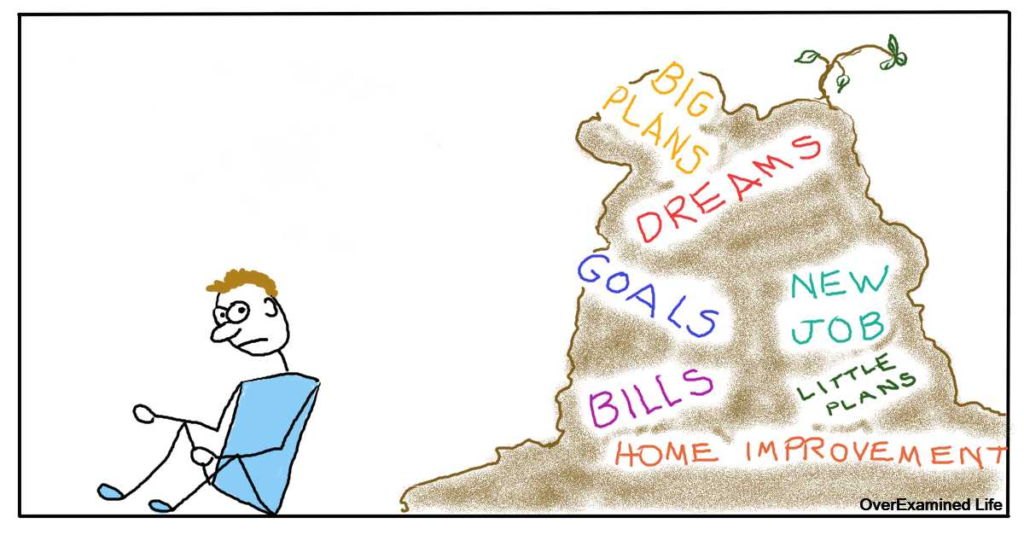 BIG
PLANS
DREAMS
GOALS
NEW
JOB
BILLS
LITTLE
PLANS
HOME IMPROVEMENT
OverExamined Life